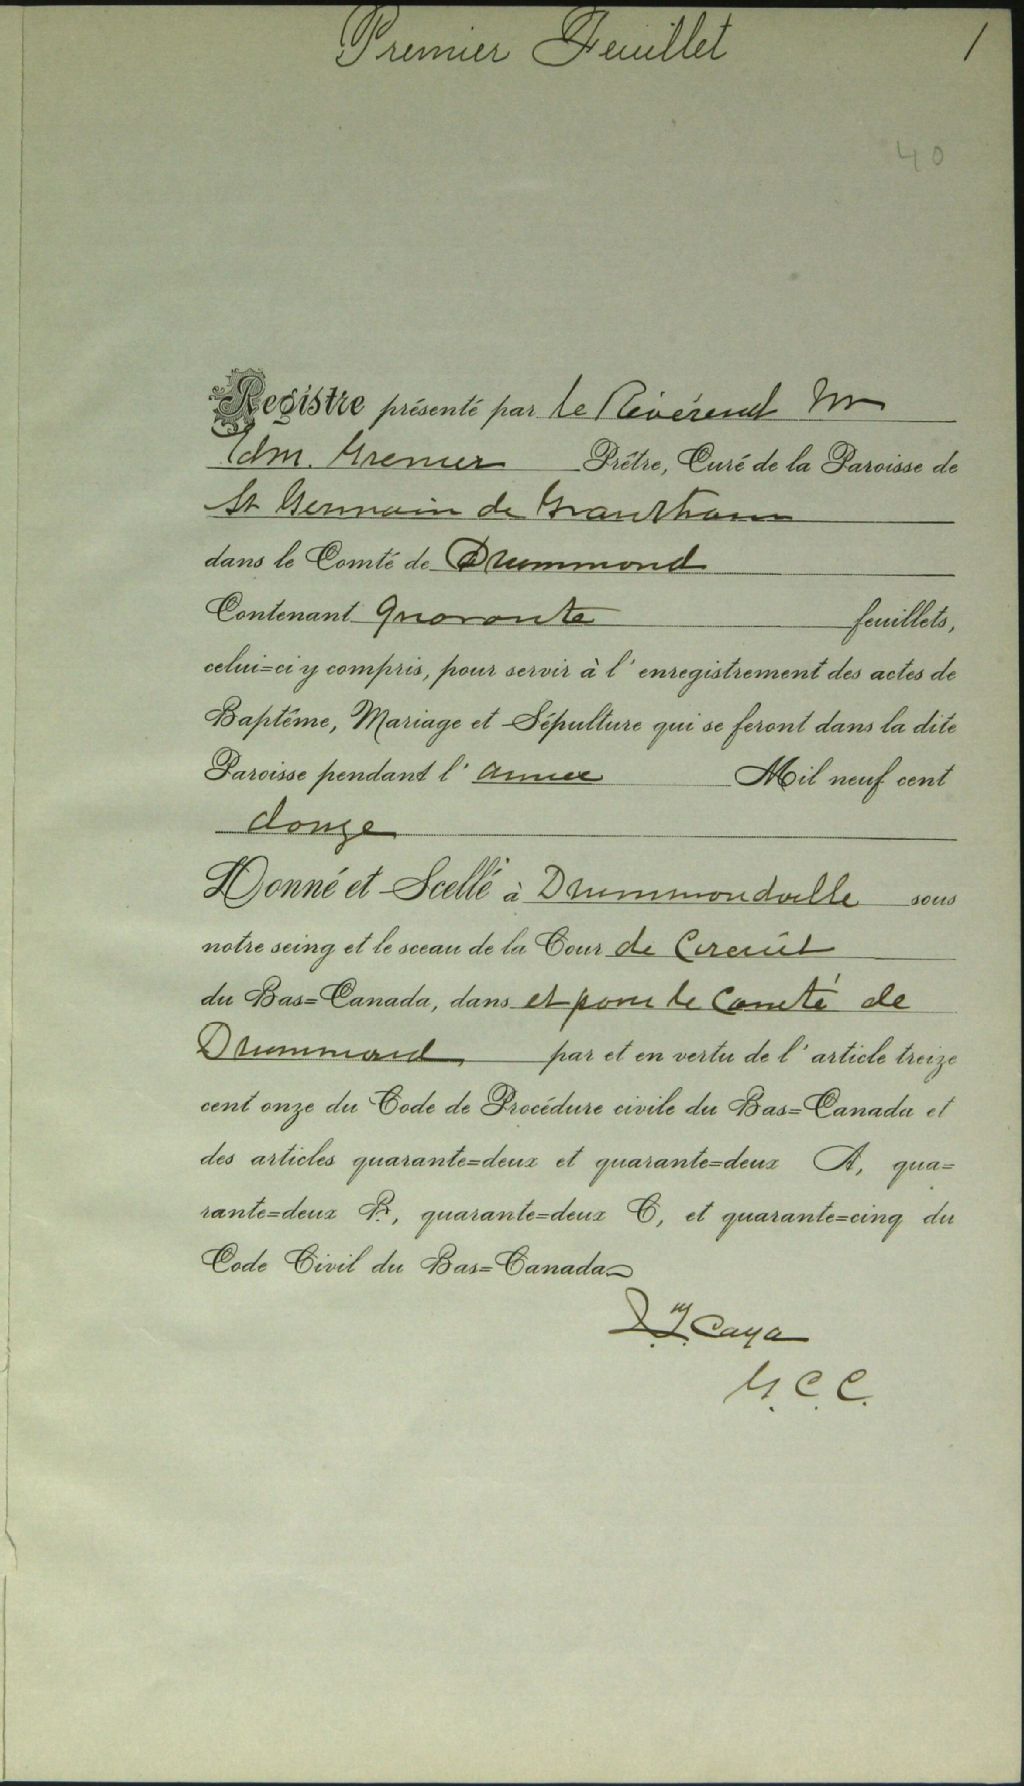 Premier Feuillet 1
40
Registre présenté par le Révérend Mr
Edm. Grenier Prêtre, Curé de la Paroisse de
St Germain de Grantham
dans le Comté de Drummond
Contenant Quarante feuillets,
celui=ci y compris, pour servir à l'enregistrement des actes de
Baptême, Mariage et Sépulture qui se feront dans la dite
Paroisse pendant l'année Mil neuf cent
douze
Donné et Scellé à Drummondville sous
notre seing et le sceau de la Cour de Circuit
du Bas=Canada, dans et pour le Comté de
Drummond par et en vertu de l'article treize
cent onze du Code de Procédure civile du Bas=Canada et
des articles quarante=deux et quarante=deux A, qua=
rante=deux B, quarante=deux C, et quarante=cinq du
Code Civil du Bas=Canada
Caya
G. C. C.